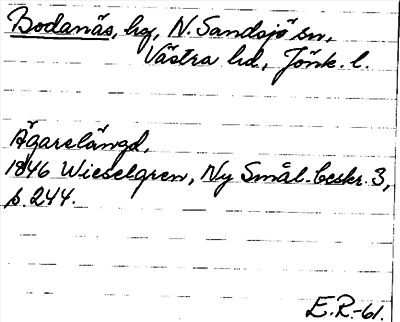 Bodanäs, hg, N. Sandsjö sn,
Västra hd., Jönk. l.
Ägarelängd,
1846 Wieselgren, Ny Smål. beskr. 3,
s. 244.
E.R.-61.